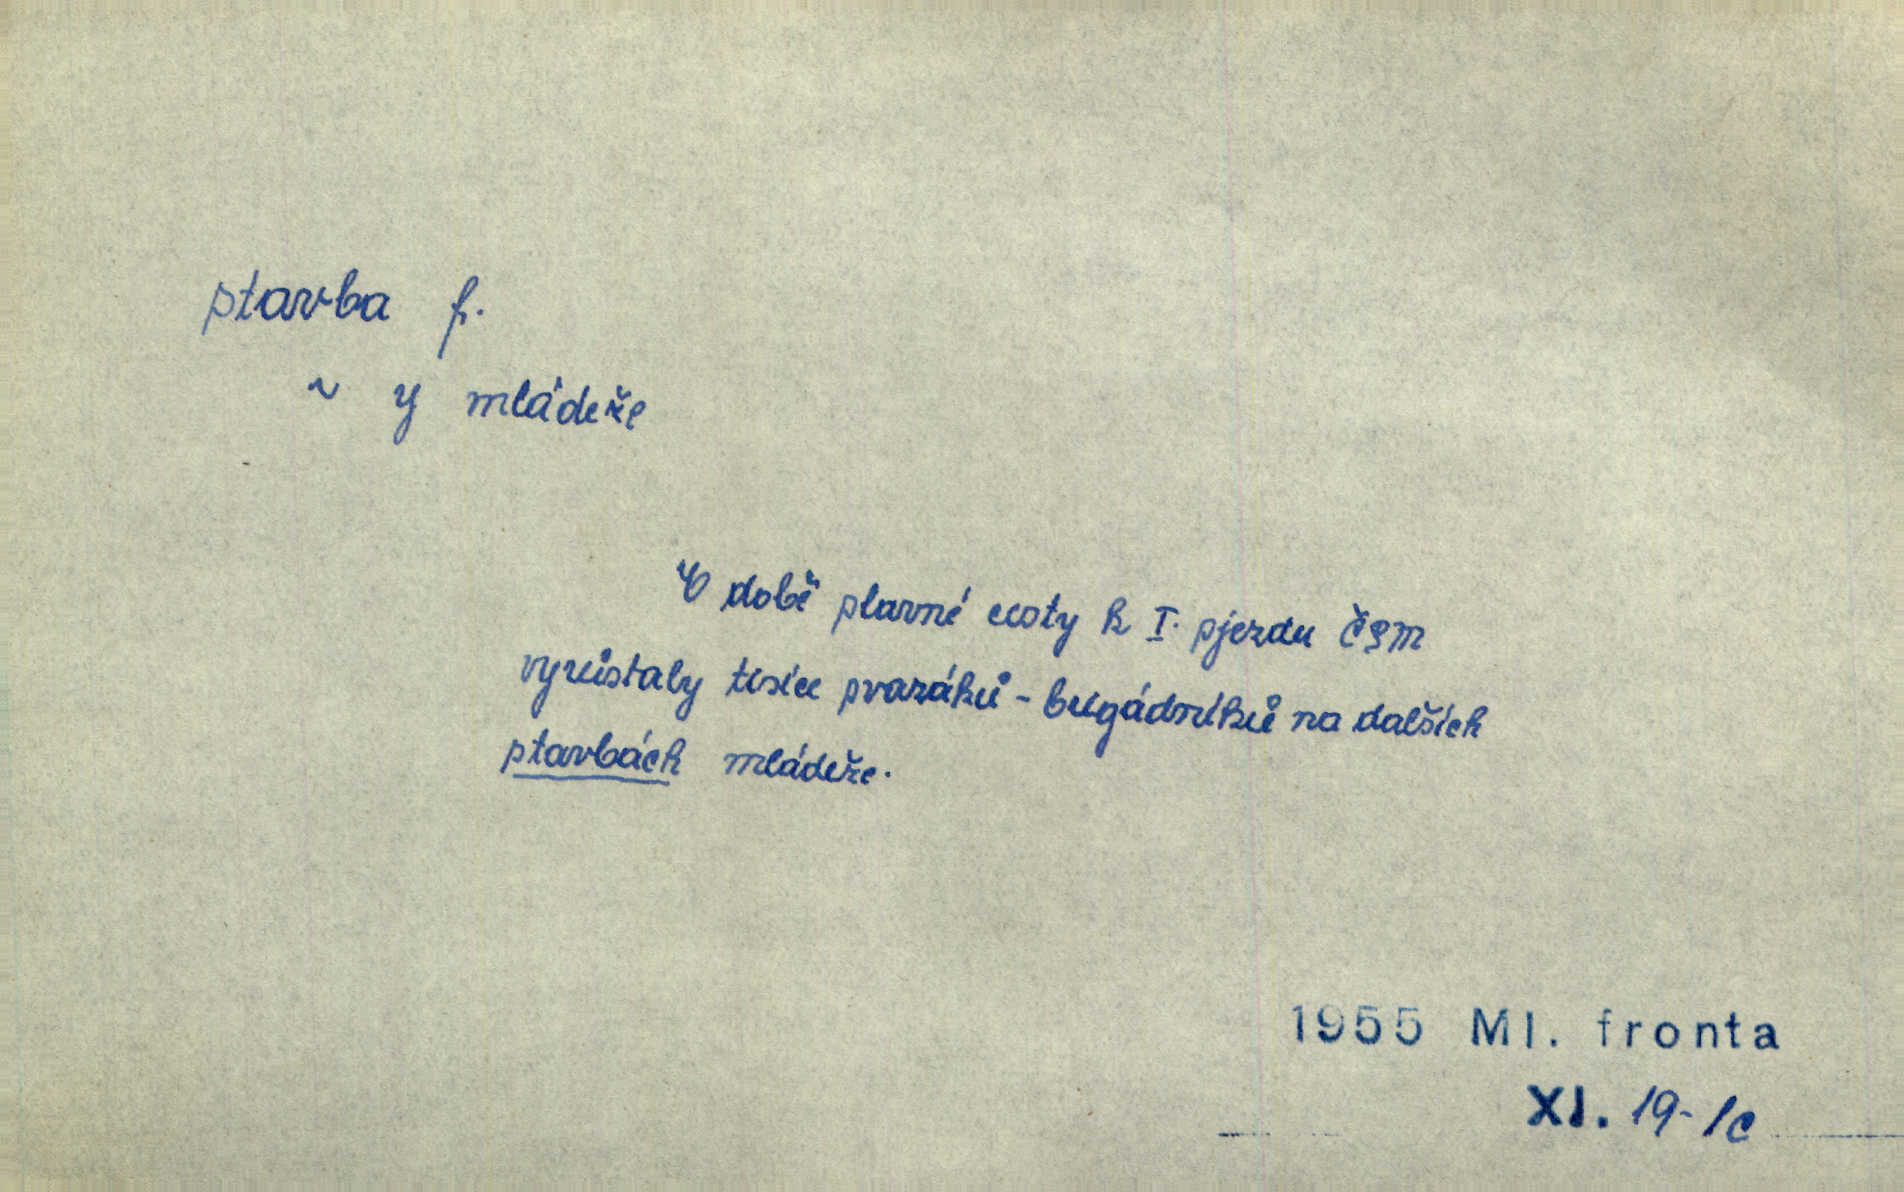 stavba f.
~ y mládeže
V době slavné cesty k I. sjezdu ČSM
vyrůstaly tisíce svazáků - brigádníků na dalších
stavbách mládeže.
1955 Ml. fronta
XI. 19-1c